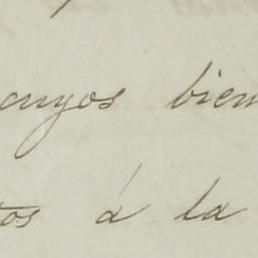 cuyos bien
tos á la